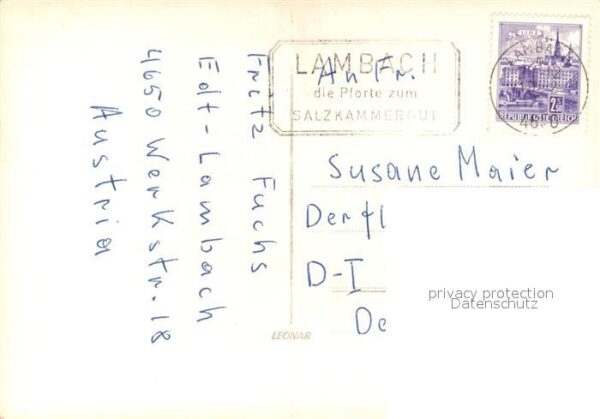 Fritz Fuchs
Edt-Lambach
4650 Werkstr. 18
Austria
LAMBACH
die Pforte zum
SALZKAMMERGUT
LINZ
2.50
REPUBLIK ÖSTERREICH
An Fr.
Susane Maier
Derfl
D-I
De
privacy protection
Datenschutz
LEONAR